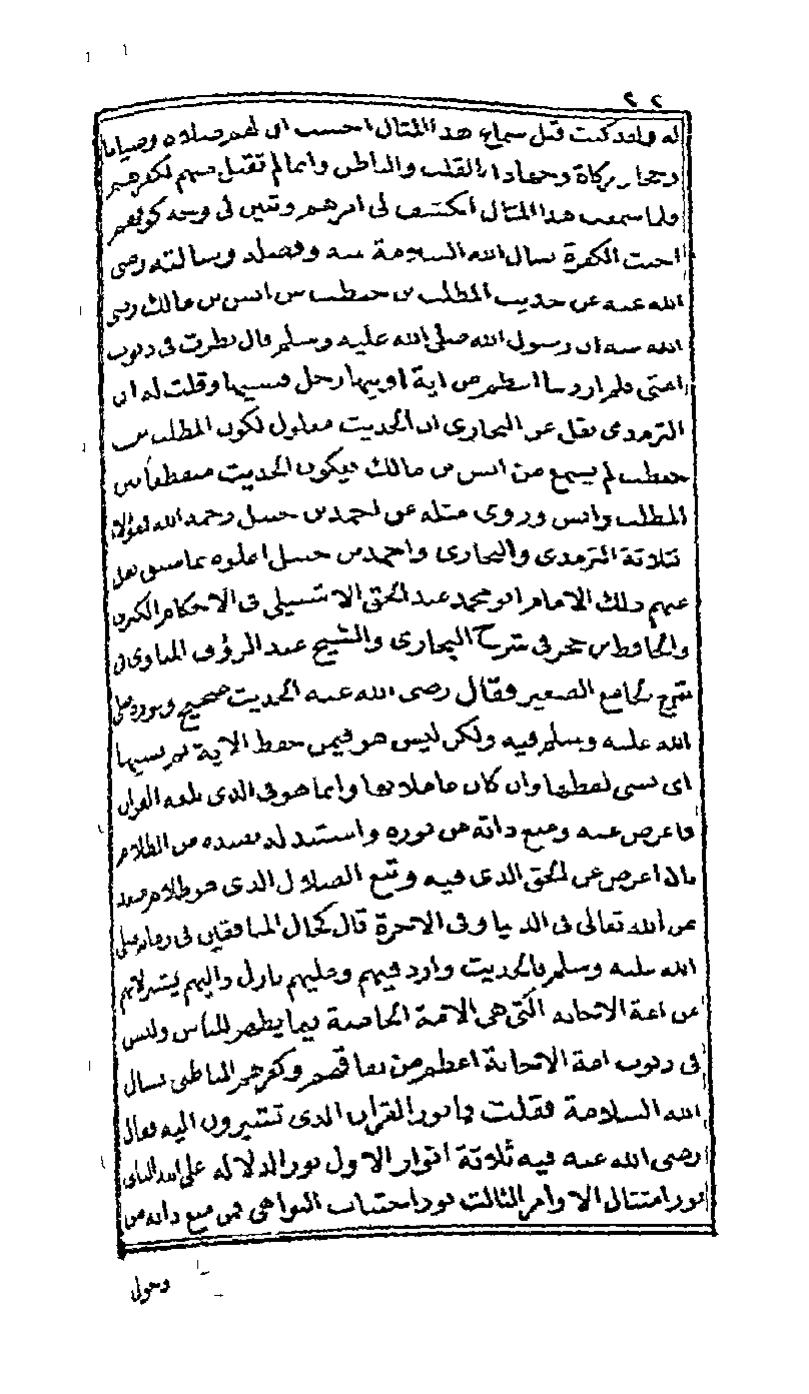 ٢٢
له ولقد كنت قبل سماع هذا المثال احسب ان لهم صلاة وصياما
وحجا وزكاة وجهادا بالقلب والباطن وانما لم تقبل منهم لكفرهم
ولما سمعت هذا المثال انكشف لى امرهم وتبين لى وجه كونهم
اخبث الكفرة نسال الله السلامة بمنه وفضله وسالته رضى
الله عنه عن حديث المطلب بن حنطب عن انس بن مالك رضى
الله عنه ان رسول الله صلى الله عليه وسلم قال نظرت فى ذنوب
امتى فلم ار ذنبا اعظم من اية اوتيها رجل فنسيها وقلت له ان
الترمذى نقل عن البخارى ان الحديث معلول لكون المطلب بن
حنطب لم يسمع من انس بن مالك فيكون الحديث منقطعا بين
المطلب وانس وروى مثله عن احمد بن حنبل رحمه الله فهؤلاء
ثلاثة الترمذى والبخارى واحمد بن حنبل اعلوه بما سبق نقل
عنهم ذلك الامام ابو محمد عبد الحق الاشبيلى فى الاحكام الكبرى
والحافظ بن حجر فى شرح البخارى والشيخ عبد الرؤف المناوى فى
شرح الجامع الصغير فقال رضى الله عنه الحديث صحيح ونوره صلى
الله عليه وسلم فيه ولكن ليس هو فيمن حفظ الاية ثم نسيها
اى نسى لفظها وان كان عاملا بها وانما هو فى الذى بلغه القران
فاعرض عنه ومنع ذاته من نوره واستبدله بضده من الظلام
بان اعرض عن الحق الذى فيه وتبع الضلال الذى هو ظلام
من الله تعالى فى الدنيا وفى الاخرة قال كحال المنافقين فى زمانه صلى
الله عليه وسلم فالحديث وارد فيهم وعليهم نازل واليهم يشير لانهم
من امة الاجابة التى هى الامة الخاصة فيما يظهر للناس وليس
فى ذنوب امة الاجابة اعظم من نفاقهم وكفرهم الباطنى نسال
الله السلامة فقلت ما نور القران الذى تشيرون اليه فقال
رضى الله عنه فيه ثلاثة انوار الاول نور الدلالة على الله الثانى
نور امتثال الاوامر الثالث نور اجتناب النواهى فمن منع ذاته من